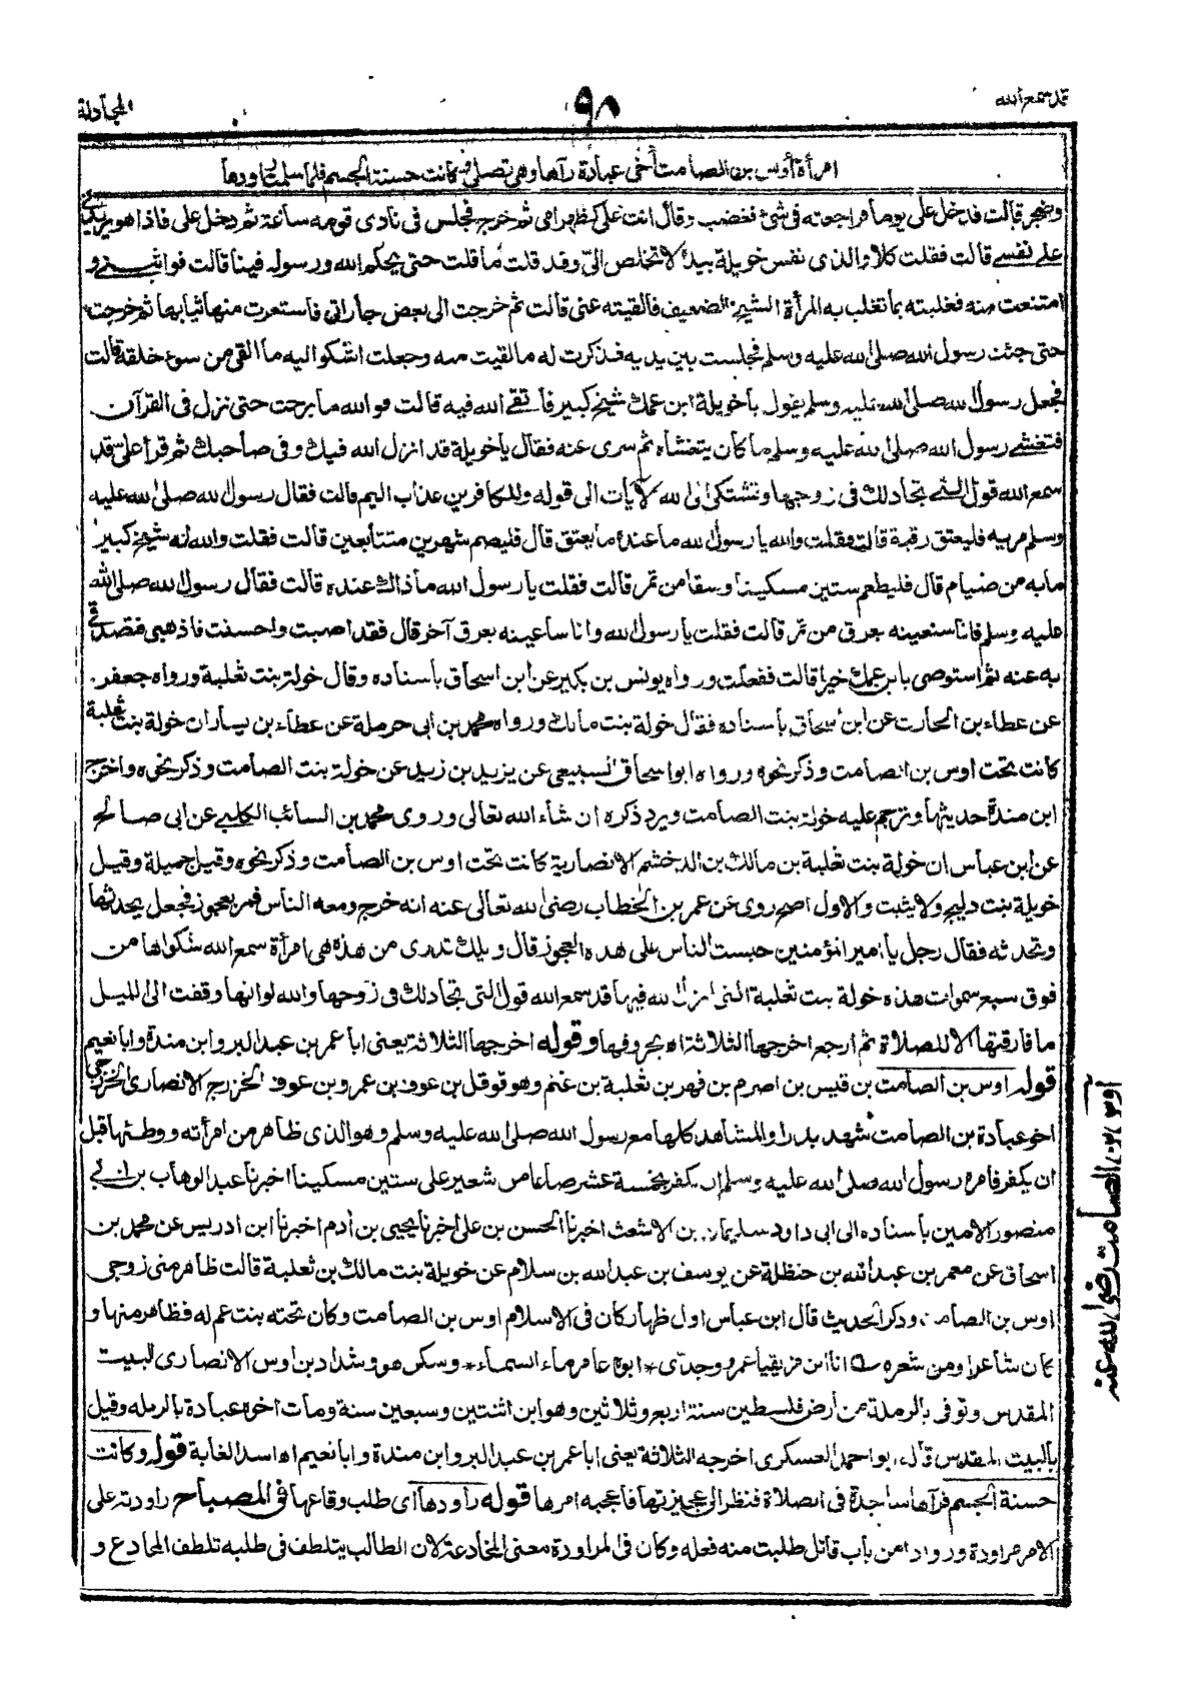 قد سمع الله
٩٨
المجادلة
امرأة أوس بن الصامت أخي عبادة رآها وهي تصلي فكانت حسنة الجسم فلما سلمت راودها
وضجر قالت فدخل علي يوما فراجعته في شئ فغضب وقال انت علي كظهر امي ثم خرج فجلس في نادي قومه ساعة ثم دخل علي فاذا هو يريدني
على نفسي قالت فقلت كلا والذي نفس خويلة بيده لا تخلص الي وقد قلت ما قلت حتى يحكم الله ورسوله فينا قالت فواثبني و
امتنعت منه فغلبته بما تغلب به المرأة الشيخ الضعيف فالقيته عني قالت ثم خرجت الى بعض جاراتي فاستعرت منها ثيابها ثم خرجت
حتى جئت رسول الله صلى الله عليه وسلم فجلست بين يديه فذكرت له ما لقيت منه وجعلت اشكو اليه ما القى من سوء خلقه قالت
فجعل رسول الله صلى الله عليه وسلم يقول يا خويلة ابن عمك شيخ كبير فاتقى الله فيه قالت فوالله ما برحت حتى نزل في القرآن
فتغشى رسول الله صلى الله عليه وسلم ما كان يتغشاه ثم سرى عنه فقال يا خويلة قد انزل الله فيك وفي صاحبك ثم قرأ على قد
سمع الله قول التي تجادلك في زوجها وتشتكي الى الله الآيات الى قوله وللكافرين عذاب اليم قالت فقال رسول الله صلى الله عليه
وسلم مريه فليعتق رقبة قالت وقلت والله يا رسول الله ما عنده ما يعتق قال فليصم شهرين متتابعين قالت فقلت والله انه شيخ كبير
مابه من صيام قال فليطعم ستين مسكينا وسقا من تمر قالت فقلت يا رسول الله ما ذاك عنده قالت فقال رسول الله صلى الله
عليه وسلم فانا سنعينه بعرق من تمر قالت فقلت يا رسول الله وانا ساعينه بعرق آخر قال فقد اصبت واحسنت فاذهبي فتصدقي
به عنه ثم استوصي بابن عمك خيرا قالت ففعلت ورواه يونس بن بكير عن ابن اسحاق باسناده وقال خولة بنت ثعلبة ورواه جعفر
عن عطاء بن الحارث عن ابن اسحاق باسناده فقال خولة بنت مالك ورواه محمد بن ابي حرملة عن عطاء بن يسار ان خولة بنت ثعلبة
كانت تحت اوس بن الصامت وذكر نحوه ورواه ابو اسحاق السبيعي عن يزيد بن زيد عن خولة بنت الصامت وذكر نحوه واخرج
ابن مندة حديثها وترجم عليه خولة بنت الصامت ويرد ذكره ان شاء الله تعالى وروى محمد بن السائب الكلبي عن ابي صالح
عن ابن عباس ان خولة بنت ثعلبة بن مالك بن الدخشم الانصارية كانت تحت اوس بن الصامت وذكر نحوه وقيل جميلة وقيل
خويلة بنت دليج ولا يثبت والاول اصح روى عن عمر بن الخطاب رضي الله تعالى عنه انه خرج ومعه الناس فمر بعجوز فجعل يحدثها
وتحدثه فقال رجل يا امير المؤمنين حبست الناس على هذه العجوز قال ويلك تدري من هذه هي امرأة سمع الله شكواها من
فوق سبع سموات هذه خولة بنت ثعلبة التي انزل الله فيها قد سمع الله قول التي تجادلك في زوجها والله لو انها وقفت الى الليل
ما فارقتها الا للصلاة ثم ارجع اخرجها الثلاثة اه بحروفها وقوله اخرجها الثلاثة يعني ابا عمر بن عبد البر وابن مندة وابا نعيم
قوله اوس بن الصامت بن قيس بن اصرم بن فهر بن ثعلبة بن غنم وهو قوقل بن عوف بن عمرو بن عوف الخزرج الانصاري الخزرجي
اخو عبادة بن الصامت شهد بدرا والمشاهد كلها مع رسول الله صلى الله عليه وسلم وهو الذي ظاهر من امرأته ووطئها قبل
ان يكفر فامره رسول الله صلى الله عليه وسلم ان يكفر بخمسة عشر صاعا من شعير على ستين مسكينا اخبرنا عبد الوهاب بن ابي
منصور الامين باسناده الى ابي داود سليمان بن الاشعث اخبرنا الحسن بن علي اخبرنا يحيى بن آدم اخبرنا ابن ادريس عن محمد بن
اسحاق عن معمر بن عبد الله بن حنظلة عن يوسف بن عبد الله بن سلام عن خويلة بنت مالك بن ثعلبة قالت ظاهر مني زوجي
اوس بن الصامت وذكر الحديث قال ابن عباس اول ظهار كان في الاسلام اوس بن الصامت وكان تحته بنت عم له فظاهر منها و
كان شاعرا ومن شعره انا ابن مزيقيا عمرو وجدي * ابوه عامر ماء السماء * وسكن هو وشداد بن اوس الانصاري البيت
المقدس وتوفي بالرملة من أرض فلسطين سنة اربع وثلاثين وهو ابن اثنتين وسبعين سنة ومات اخوه عبادة بالرمله وقيل
بالبيت المقدس قاله ابو احمد العسكري اخرجه الثلاثة يعني ابا عمر بن عبد البر وابن مندة وابا نعيم اه اسد الغابة قوله وكانت
حسنة الجسم فرآها ساجدة في الصلاة فنظر الى عجيزتها فاعجبه امرها قوله راودها اي طلب وقاعها في المصباح راودته على
الامر مراودة وروادا من باب قاتل طلبت منه فعله وكان في المراودة معنى المخادعة لان الطالب يتلطف في طلبه تلطف المخادع و
أوس بن الصامت رضي الله عنه